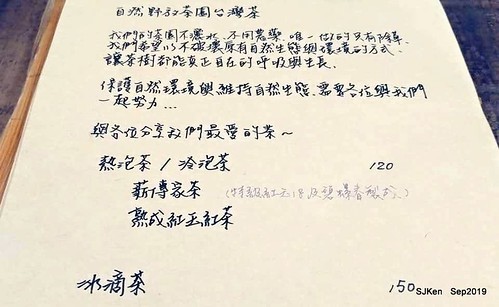 自然野放茶園台灣茶
我們的茶園不灑水、不用農藥、唯一做的只有除草、
我們希望以不破壞原有自然生態與環境的方式、
讓茶樹都能真正自在的呼吸與生長、
保護自然環境與維持自然生態、需要各位與我們
一起努力...
與各位分享我們最愛的茶～
熱泡茶 / 冷泡茶 120
薪傳家茶
熟成紅玉紅茶
冰滴茶 150
SJKen Sep2019